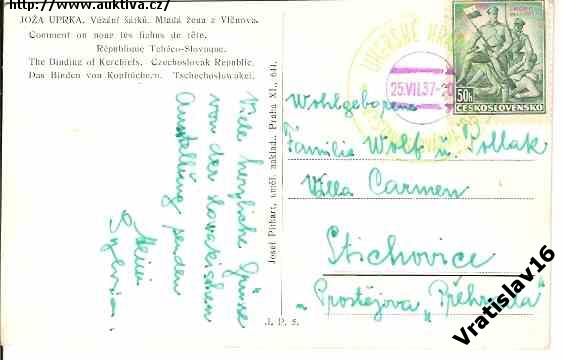 http://www.auktiva.cz/
JOŽA UPRKA. Vázání šátků. Mladá žena z Vlčnova.
Comment on noue les fichus de tête.
République Tchéco-Slovaque.
The Binding of Kerchiefs. Czechoslovak Republic.
Das Binden von Kopftüchern. Tschechoslowakei.
Viele herzliche Grüsse
von der slowakischen
Ausstellung senden
Josef Pithart, uměl. naklad., Praha XI., 641.
J. P. 5.
25.VII.37
50h
ČESKOSLOVENSKO
Wohlgeborene
Familie Wolf u. Pollak
Villa Carmen
Stichovice
Prostějova "Přehrada"
Vratislav16